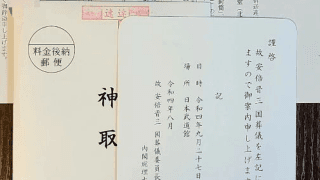 謹啓
故 安倍晋三 国葬儀を左記に
ますので御案内申し上げま
記
日時 令和四年九月二十七日
場所 日本武道館
令和四年八月
故 安倍晋三 国葬儀委員
内閣総理
料金後納
郵便
神取